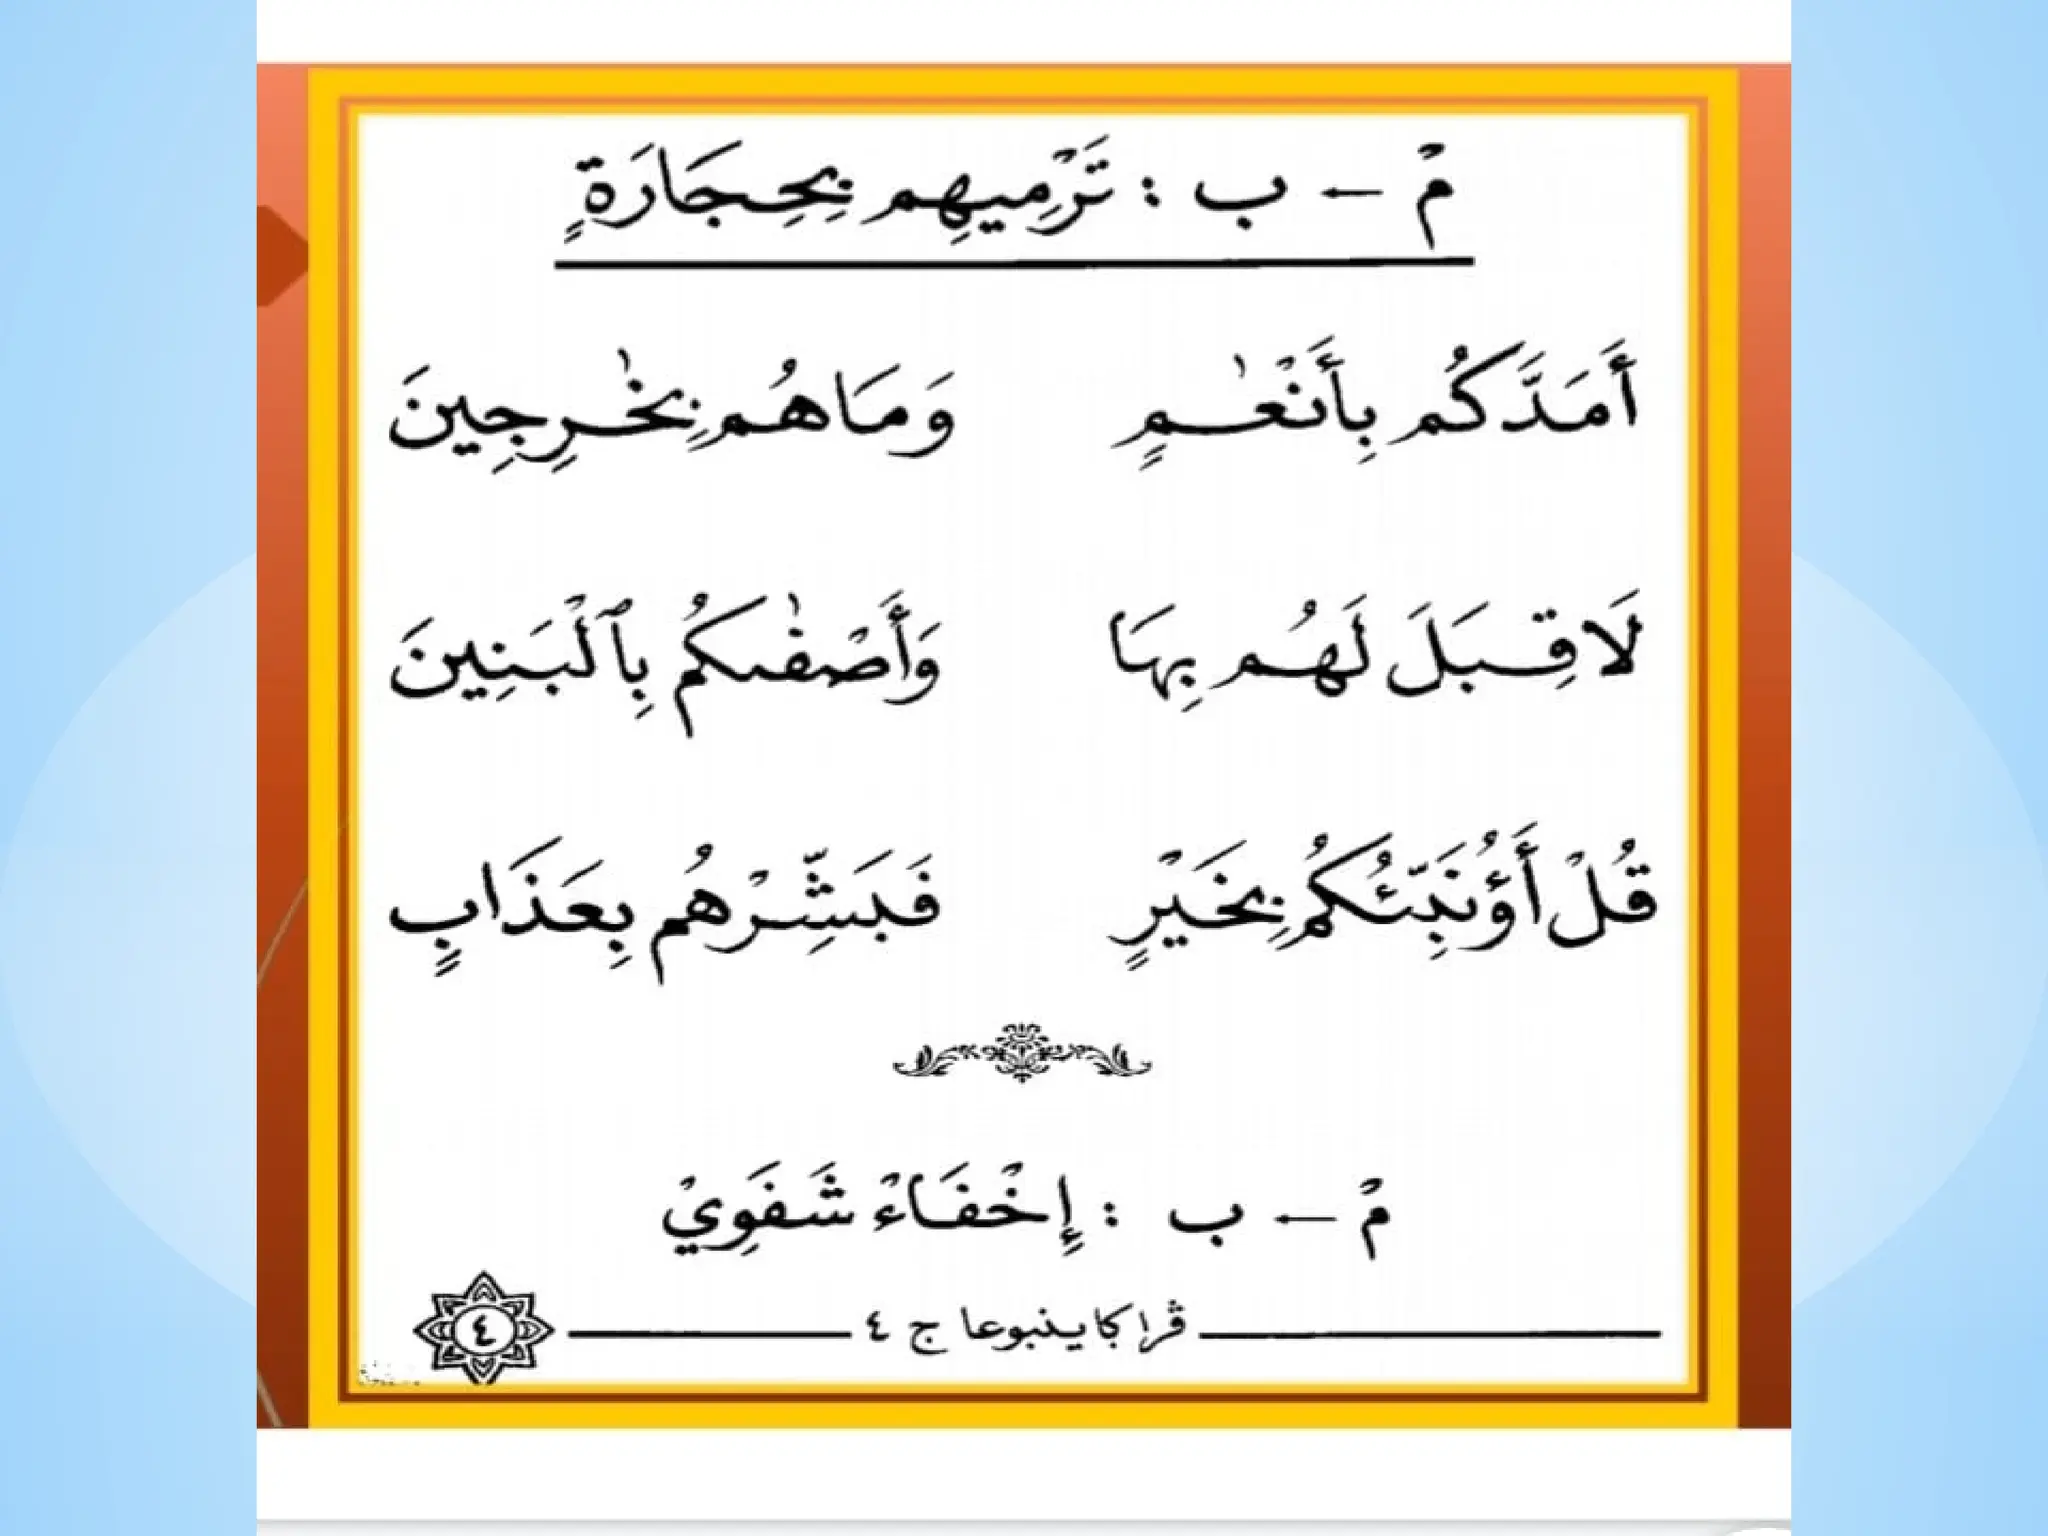 مْ ← ب : تَرْمِيهِم بِحِجَارَةٍ
أَمَدَّكُم بِأَنْعٰمٍ وَمَاهُم بِخٰرِجِينَ
لَاقِبَلَ لَهُم بِهَا وَأَصْفٰىكُم بِٱلْبَنِينَ
قُلْ أَؤُنَبِّئُكُم بِخَيْرٍ فَبَشِّرْهُم بِعَذَابٍ
مْ ← ب : إِخْفَاءْ شَفَوِيْ
ڤراكاينبوعا ج ٤
٤